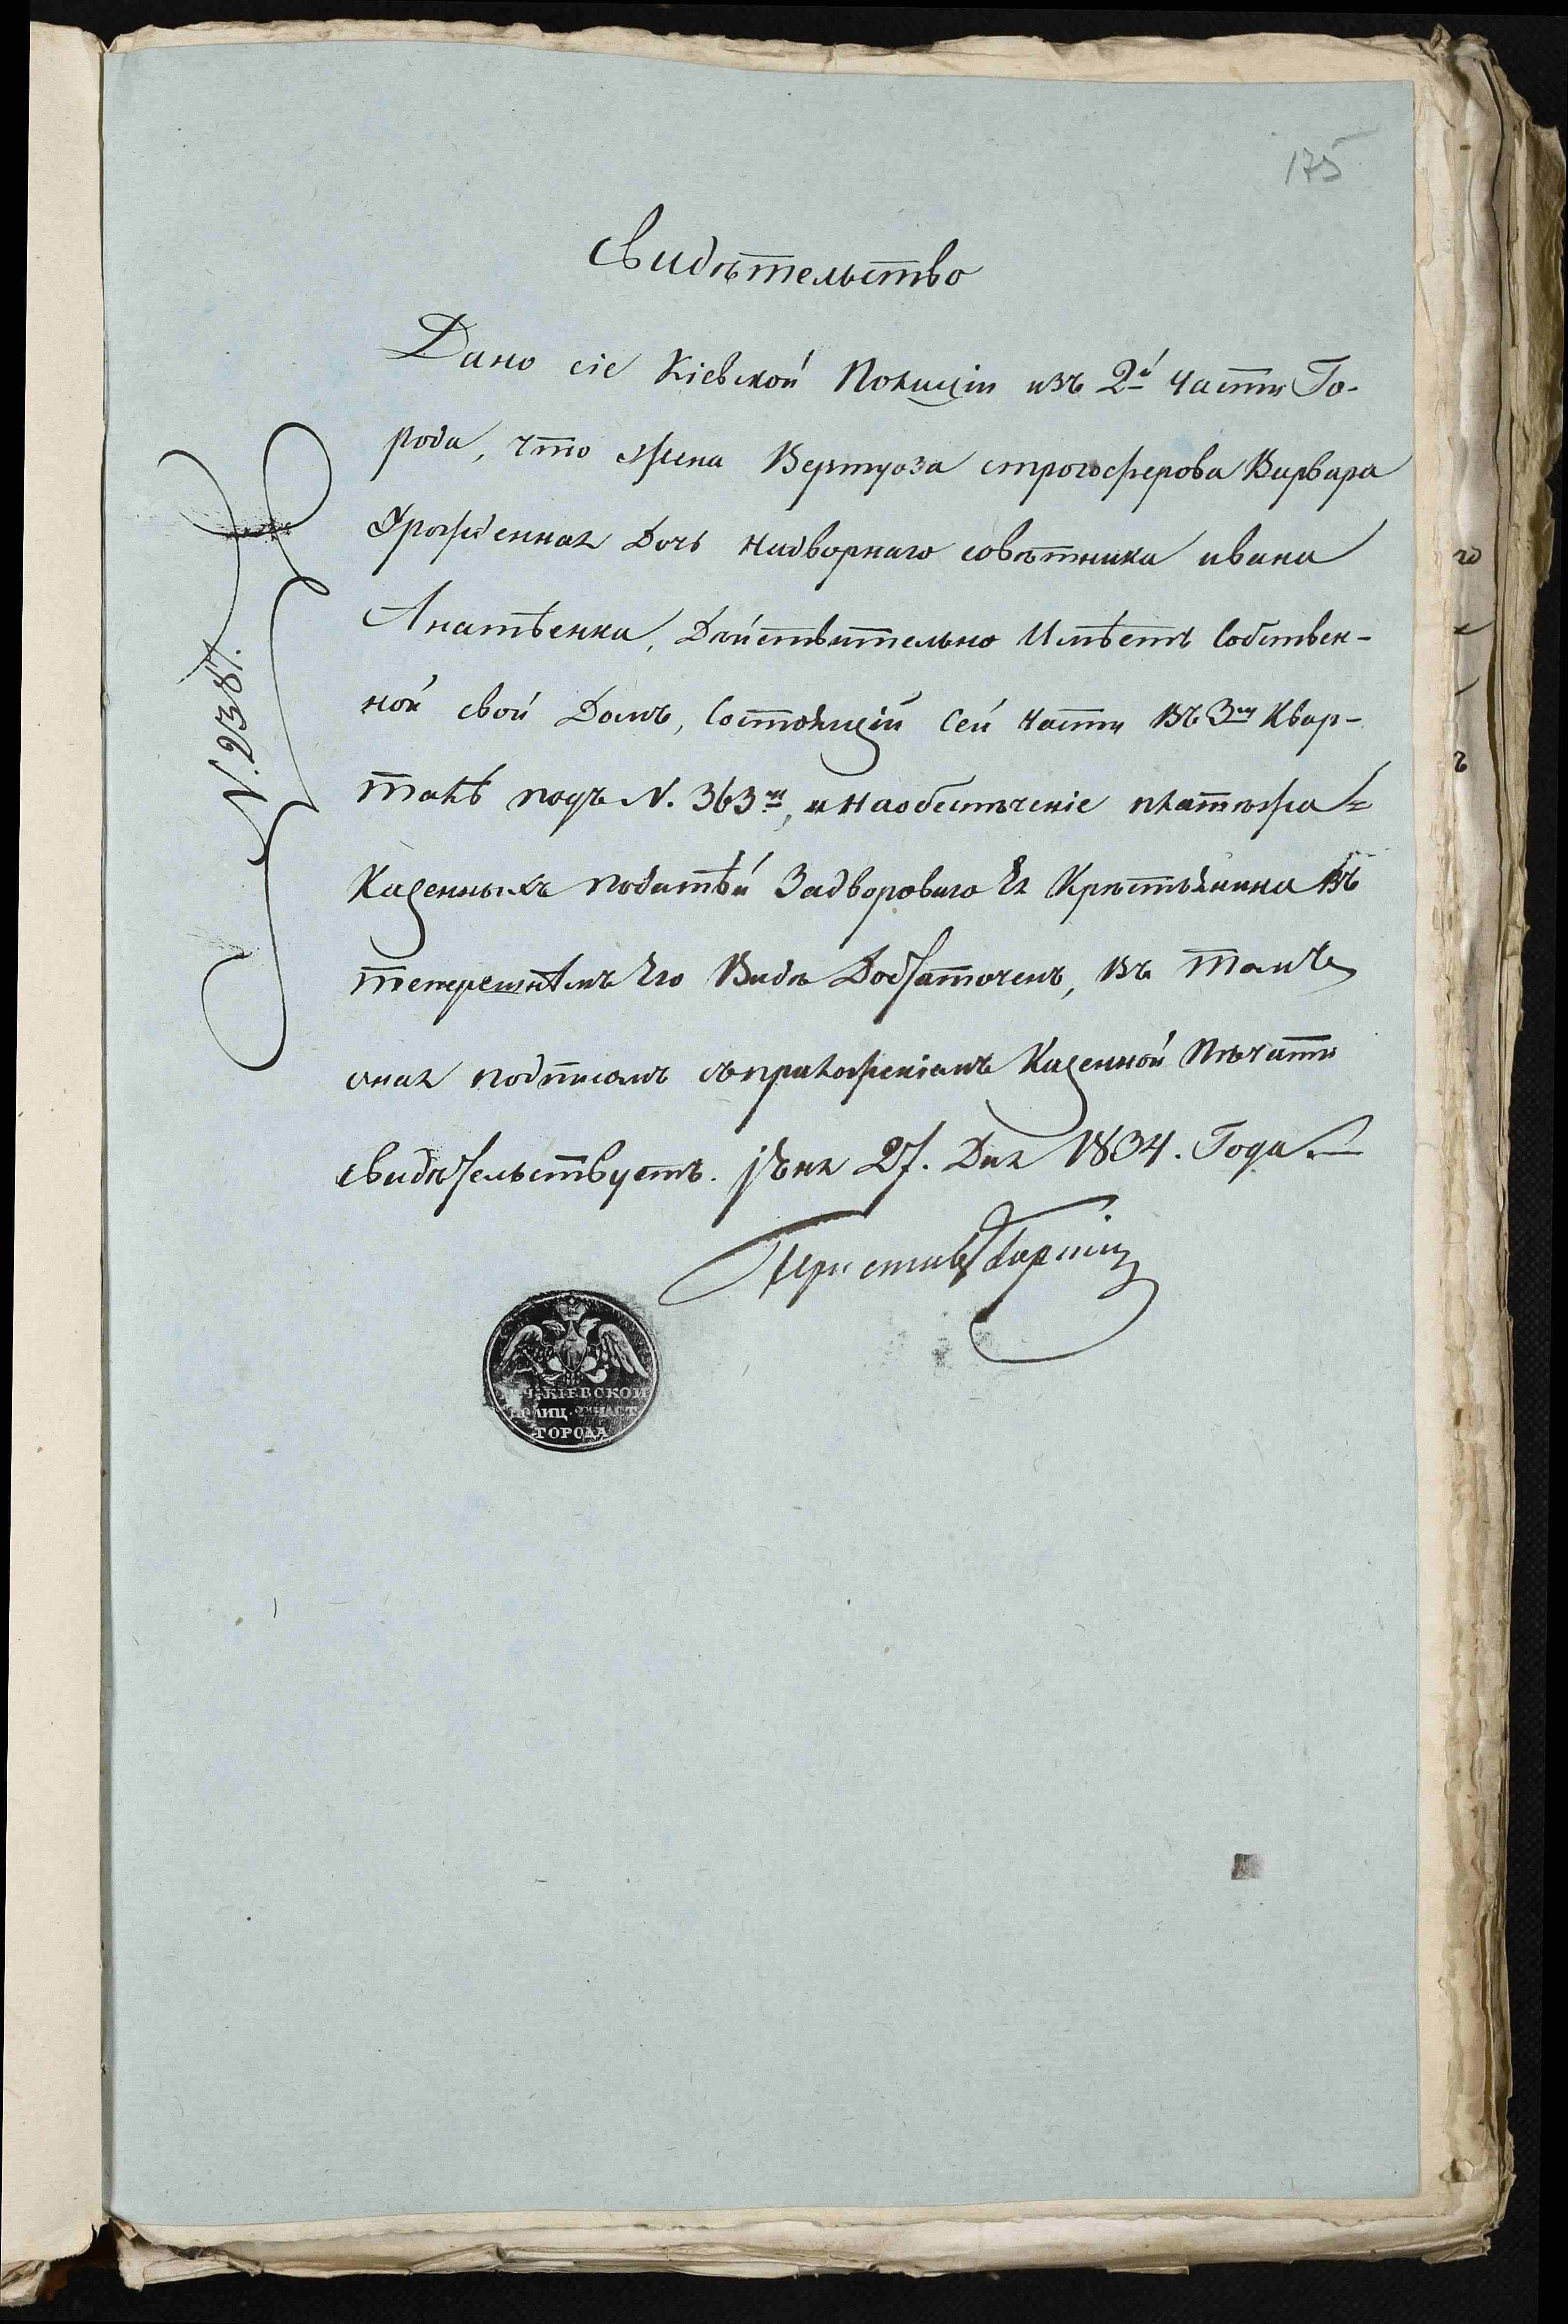 175
Свидѣтельство
Дано сіе Кіевской Полиціи изъ 2й Части Го-
рода, что жена Вертуоза строгоферова Варвара
Урожденная Дочь Надворнаго совѣтника ивана
Дѣйствительно Имѣетъ Собствен-
ной свой Домъ, Состоящій Сей Части Въ 3мъ Квар-
талѣ подъ N. 363м, и На обеспѣченіе платежа
Казенныхъ податѣй Задвороваго Ея Крѣстьянина Въ
теперешнѣмъ Его Видѣ Достаточенъ, Въ томъ
оная подписомъ съ приложеніемъ Казенной Пѣчати
свидѣтельствуетъ. 27. Дня 1834. Года.
Приставъ
N. 2387.
КІЕВСКОЙ
ПОЛИЦ. 2й ЧАСТ
ГОРОДА